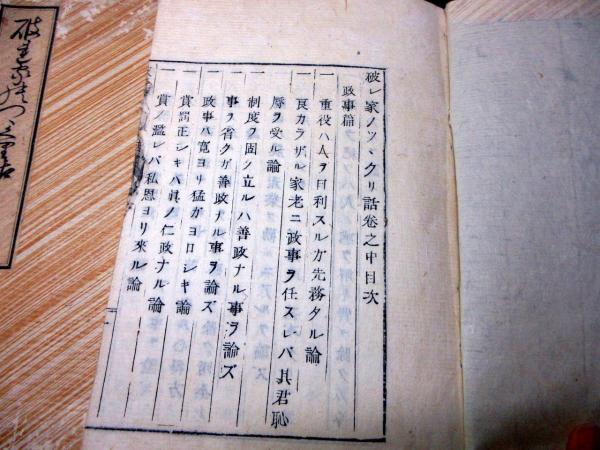 破レ家ノツヾクリ話卷之中目次
政事篇
一 重役ハ人ヲ目利スルガ先務タル論
一 良カラザル家老ニ政事ヲ任スレバ其君恥
辱ヲ受ル論
一 制度ヲ固ク立ルハ善政ナル事ヲ論ズ
一 事ヲ省クガ善政ナル事ヲ論ズ
一 政事ハ寛ヨリ猛ガヨロシキ論
一 賞罰正シキハ眞ノ仁政ナル論
一 賞ノ濫レバ私恩ヨリ來ル論